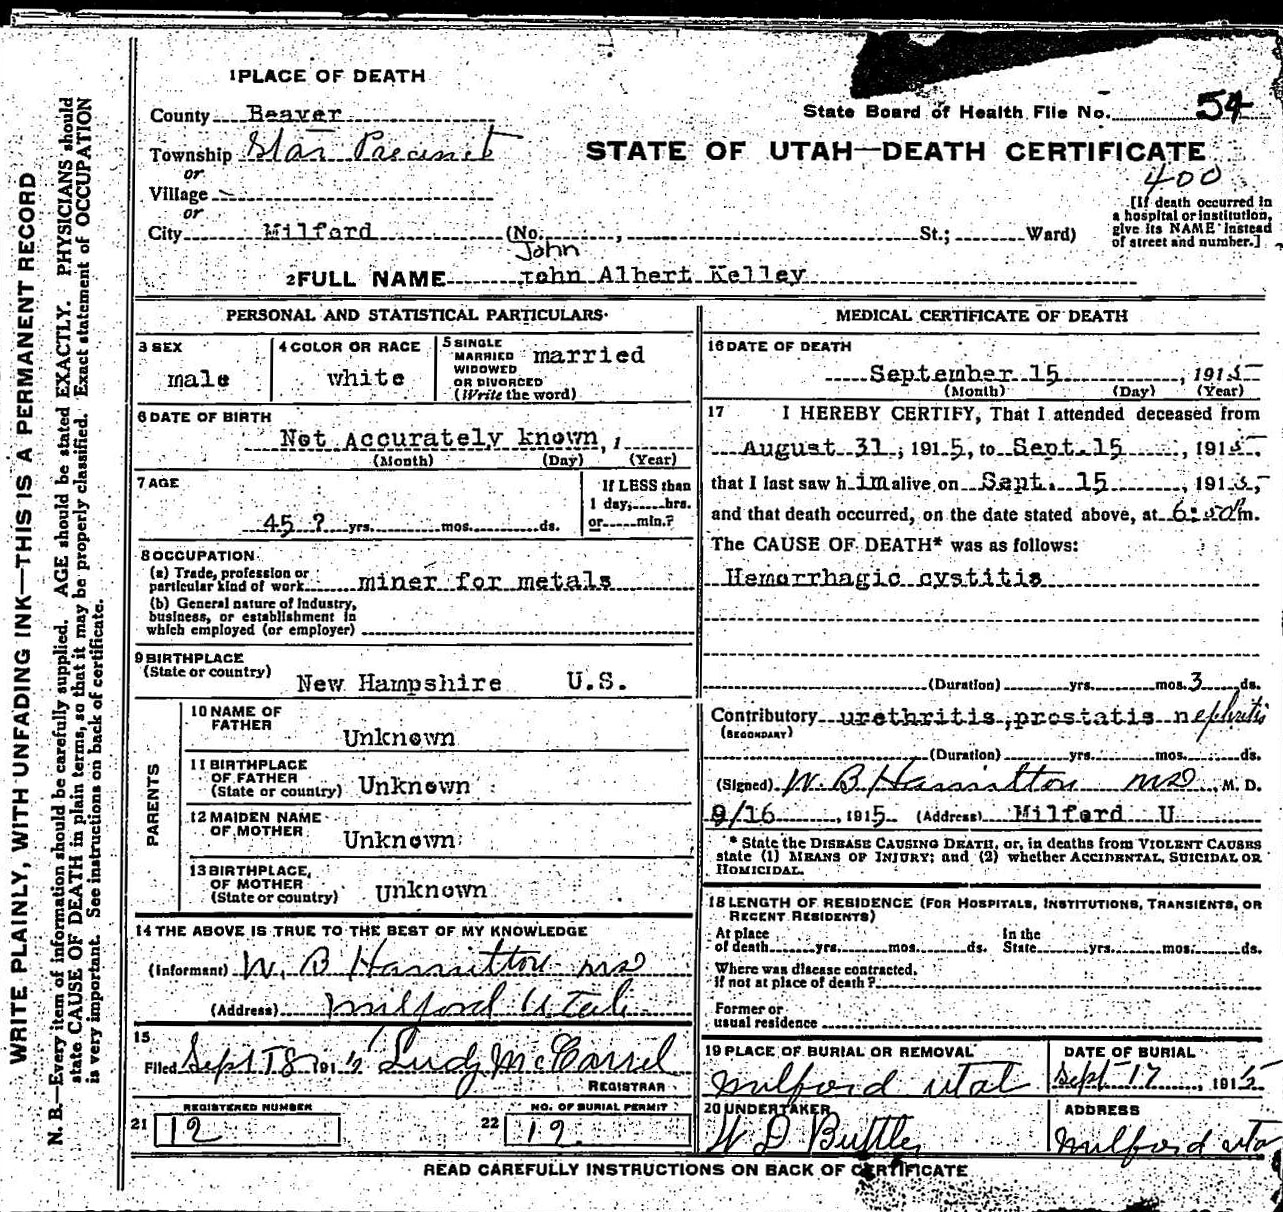 1 PLACE OF DEATH
County Beaver
Township Star Precinct
or
Village
or
City Milford (No. , St.; Ward)
State Board of Health File No. 54
STATE OF UTAH—DEATH CERTIFICATE
400
[If death occurred in
a hospital or institution,
give its NAME instead
of street and number.]
John
2 FULL NAME John Albert Kelley
PERSONAL AND STATISTICAL PARTICULARS
3 SEX
male
4 COLOR OR RACE
white
5 SINGLE
MARRIED
WIDOWED
OR DIVORCED
(Write the word)
married
6 DATE OF BIRTH
Not Accurately known, 1
(Month) (Day) (Year)
7 AGE
45 ? yrs. mos. ds.
If LESS than
1 day, hrs.
or min.?
8 OCCUPATION
(a) Trade, profession or
particular kind of work miner for metals
(b) General nature of industry,
business, or establishment in
which employed (or employer)
9 BIRTHPLACE
(State or country) New Hampshire U.S.
PARENTS
10 NAME OF
FATHER
Unknown
11 BIRTHPLACE
OF FATHER
(State or country) Unknown
12 MAIDEN NAME
OF MOTHER
Unknown
13 BIRTHPLACE,
OF MOTHER
(State or country) unknown
14 THE ABOVE IS TRUE TO THE BEST OF MY KNOWLEDGE
(Informant) W. B Hamilton MD
(Address) Milford Utah
15
Filed Sept 18 1915 Ludy McCarrel
REGISTRAR
REGISTERED NUMBER
21 12
NO. OF BURIAL PERMIT
22 12.
MEDICAL CERTIFICATE OF DEATH
16 DATE OF DEATH
September 15, 1915
(Month) (Day) (Year)
17 I HEREBY CERTIFY, That I attended deceased from
August 31, 1915, to Sept. 15, 1915.
that I last saw h im alive on Sept. 15, 1915,
and that death occurred, on the date stated above, at 6:50 P m.
The CAUSE OF DEATH* was as follows:
Hemorrhagic cystitis
(Duration) yrs. mos. 3 ds.
Contributory urethritis, prostatis nephritis
(SECONDARY)
(Duration) yrs. mos. ds.
(Signed) W. B Hamilton MD, M. D.
9/16, 1915 (Address) Milford U
* State the DISEASE CAUSING DEATH, or, in deaths from VIOLENT CAUSES
state (1) MEANS OF INJURY; and (2) whether ACCIDENTAL, SUICIDAL OR
HOMICIDAL.
18 LENGTH OF RESIDENCE (FOR HOSPITALS, INSTITUTIONS, TRANSIENTS, OR
RECENT RESIDENTS)
At place
of death yrs. mos. ds.
In the
State yrs. mos. ds.
Where was disease contracted,
if not at place of death?
Former or
usual residence
19 PLACE OF BURIAL OR REMOVAL
Milford Utah
DATE OF BURIAL
Sept 17, 1915
20 UNDERTAKER
W D Buttler
ADDRESS
Milford Uta
READ CAREFULLY INSTRUCTIONS ON BACK OF CERTIFICATE
WRITE PLAINLY, WITH UNFADING INK—THIS IS A PERMANENT RECORD
N. B.—Every item of information should be carefully supplied. AGE should be stated EXACTLY. PHYSICIANS should
state CAUSE OF DEATH in plain terms, so that it may be properly classified. Exact statement of OCCUPATION
is very important. See instructions on back of certificate.